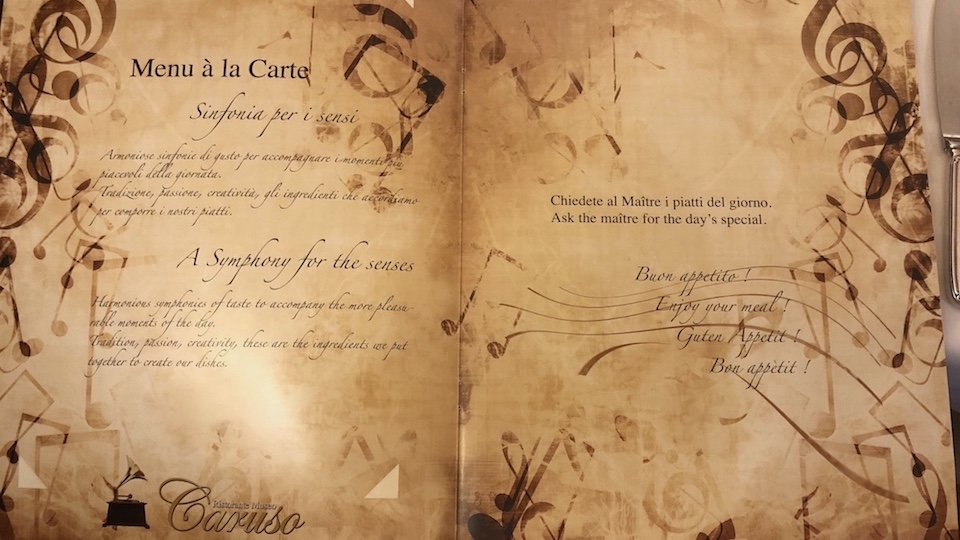 Menu à la Carte
Sinfonia per i sensi
Armoniose sinfonie di gusto per accompagnare i momenti più
piacevoli della giornata.
Tradizione, passione, creatività, gli ingredienti che accordiamo
per comporre i nostri piatti.
A Symphony for the senses
Harmonious symphonies of taste to accompany the more pleasu-
rable moments of the day.
Tradition, passion, creativity, these are the ingredients we put
together to create our dishes.
Ristorante Museo
Caruso
Chiedete al Maître i piatti del giorno.
Ask the maître for the day's special.
Buon appetito !
Enjoy your meal !
Guten Appetit !
Bon appètit !